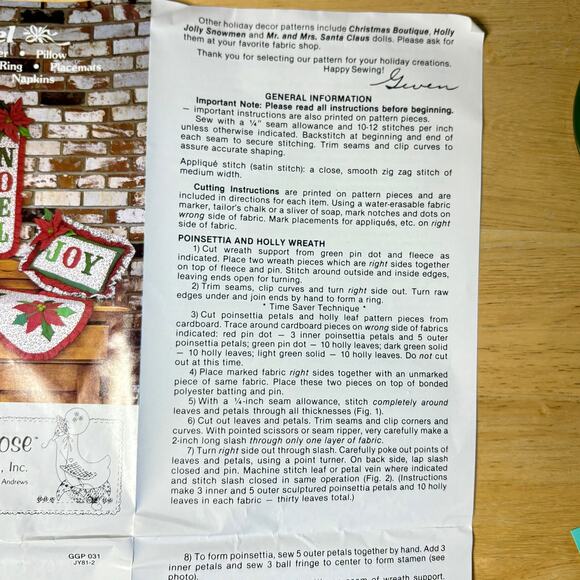 Other holiday decor patterns include Christmas Boutique, Holly
Jolly Snowmen and Mr. and Mrs. Santa Claus dolls. Please ask for
them at your favorite fabric shop.
Thank you for selecting our pattern for your holiday creations.
Happy Sewing!
Gwen
GENERAL INFORMATION
Important Note: Please read all instructions before beginning.
— important instructions are also printed on pattern pieces.
Sew with a ¼" seam allowance and 10-12 stitches per inch
unless otherwise indicated. Backstitch at beginning and end of
each seam to secure stitching. Trim seams and clip curves to
assure accurate shaping.
Appliqué stitch (satin stitch): a close, smooth zig zag stitch of
medium width.
Cutting Instructions are printed on pattern pieces and are
included in directions for each item. Using a water-erasable fabric
marker, tailor's chalk or a sliver of soap, mark notches and dots on
wrong side of fabric. Mark placements for appliqués, etc. on right
side of fabric.
POINSETTIA AND HOLLY WREATH
1) Cut wreath support from green pin dot and fleece as
indicated. Place two wreath pieces which are right sides together
on top of fleece and pin. Stitch around outside and inside edges,
leaving ends open for turning.
2) Trim seams, clip curves and turn right side out. Turn raw
edges under and join ends by hand to form a ring.
* Time Saver Technique *
3) Cut poinsettia petals and holly leaf pattern pieces from
cardboard. Trace around cardboard pieces on wrong side of fabrics
indicated: red pin dot — 3 inner poinsettia petals and 5 outer
poinsettia petals; green pin dot — 10 holly leaves; dark green solid
— 10 holly leaves; light green solid — 10 holly leaves. Do not cut
out at this time.
4) Place marked fabric right sides together with an unmarked
piece of same fabric. Place these two pieces on top of bonded
polyester batting and pin.
5) With a ¼-inch seam allowance, stitch completely around
leaves and petals through all thicknesses (Fig. 1).
6) Cut out leaves and petals. Trim seams and clip corners and
curves. With pointed scissors or seam ripper, very carefully make a
2-inch long slash through only one layer of fabric.
7) Turn right side out through slash. Carefully poke out points of
leaves and petals, using a point turner. On back side, lap slash
closed and pin. Machine stitch leaf or petal vein where indicated
and stitch slash closed in same operation (Fig. 2). (Instructions
make 3 inner and 5 outer sculptured poinsettia petals and 10 holly
leaves in each fabric — thirty leaves total.)
8) To form poinsettia, sew 5 outer petals together by hand. Add 3
inner petals and sew 3 ball fringe to center to form stamen (see
photo).
seam of wreath support.
• Pillow
Ring • Placemats
Napkins
N
O
E
L
JOY
, Inc.
Andrews
GGP 031
JY81-2